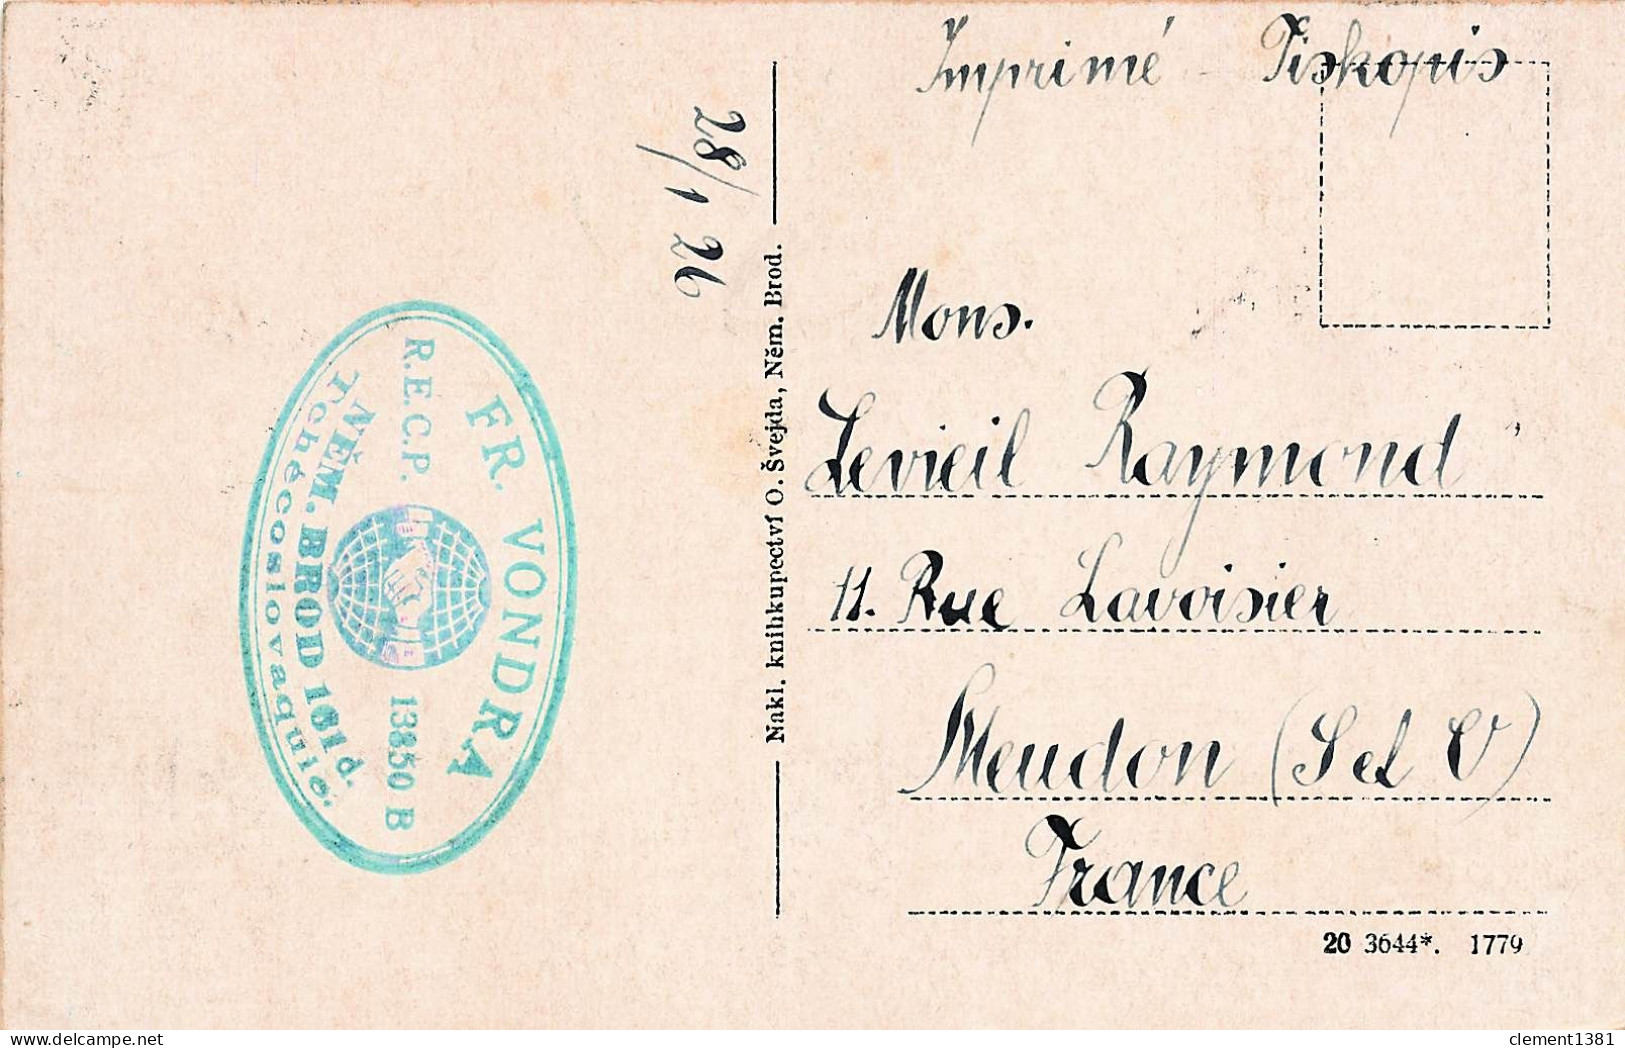 Imprimé Tiskopis
28/1 26
Mons.
Levieil Raymond
11. Rue Lavoisier
Meudon (S et O)
France
Nakl. knihkupectví O. Švejda, Něm. Brod.
FR. VONDRA
R.E.C.P. 13850 B
NĚM. BROD 161 d.
Tchécoslovaquie.
20 3644*. 1779
www.delcampe.net
clement1381